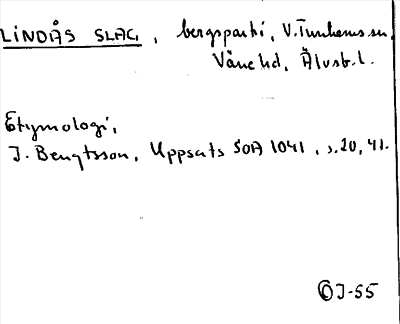 LINDÅS SLAG, bergsparti, V. Tunhems sn,
Väne hd, Älvsb. l.
Etymologi,
J. Bengtsson, Uppsats SOA 1041, s. 20, 41.
OJ-55